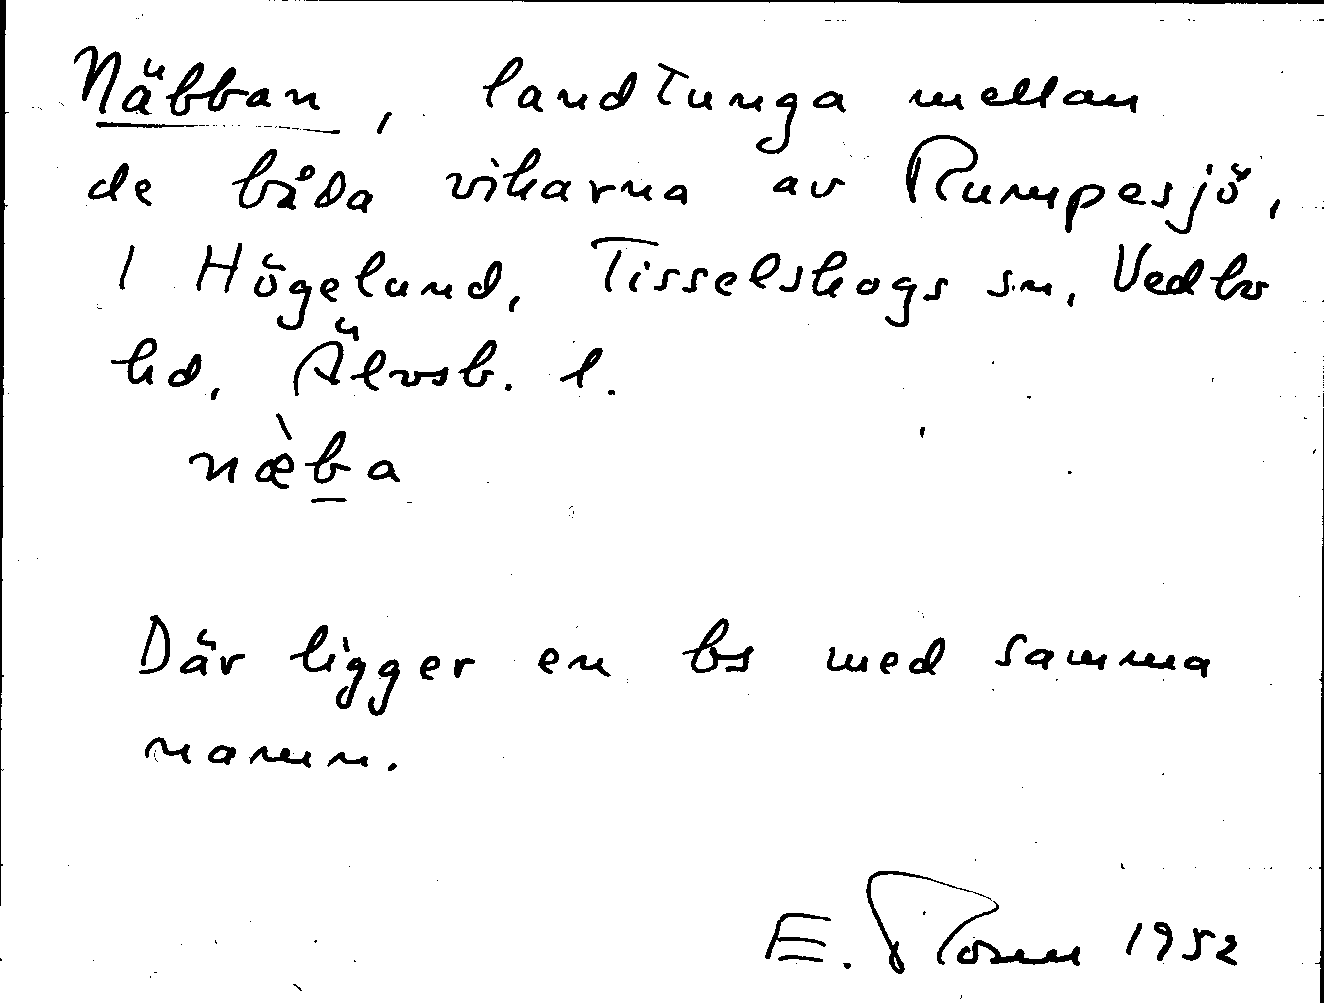 Näbban, landtunga mellan
de båda vikarna av Rumpesjö,
i Högelund, Tisselskogs sn, Vedbo
hd, Älvsb. l.
næ̀b̲a
Där ligger en bs med samma
namn.
E. 1952